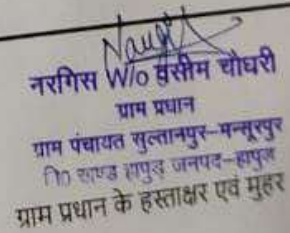 नरगिस W/o वसीम चौधरी
ग्राम प्रधान
ग्राम पंचायत सुल्तानपुर-मन्सूरपुर
खण्ड हापुड़ जनपद-हापुड़
ग्राम प्रधान के हस्ताक्षर एवं मुहर